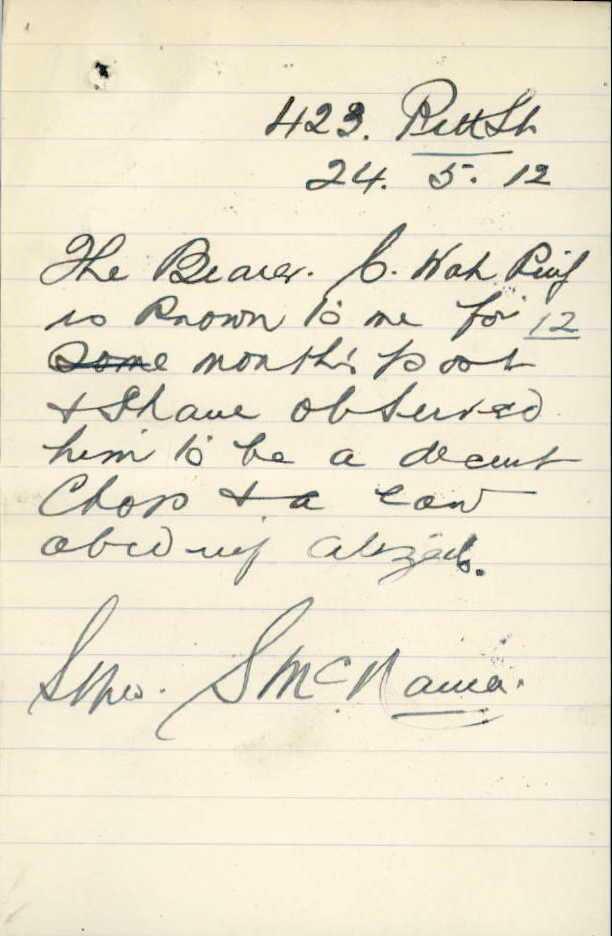 423. Pitt St
24. 5. 12
The Bearer. C. Wah Ping
is known to me for 12
some months past
& I have observed
him to be a decent
Chap & a law
abiding citizen.
S McNamara.